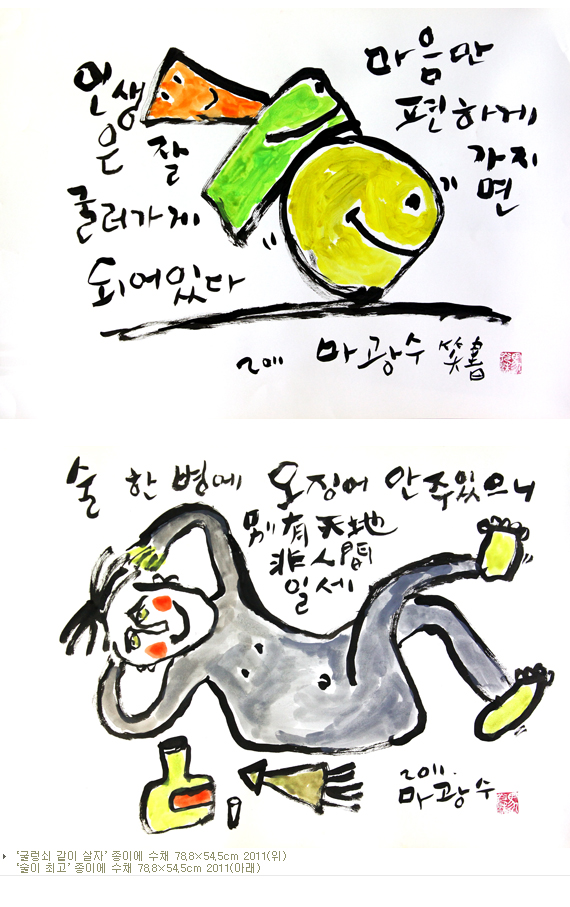 마음만
편하게
가지
면
인생
은 잘
굴러가게
되어있다
2011 마광수 笑書
술 한 병에 오징어 안주있으니
別有天地
非人間
일세
2011.
마광수
‘굴렁쇠 같이 살자’ 종이에 수채 78,8×54,5cm 2011(위)
‘술이 최고’ 종이에 수채 78,8×54,5cm 2011(아래)